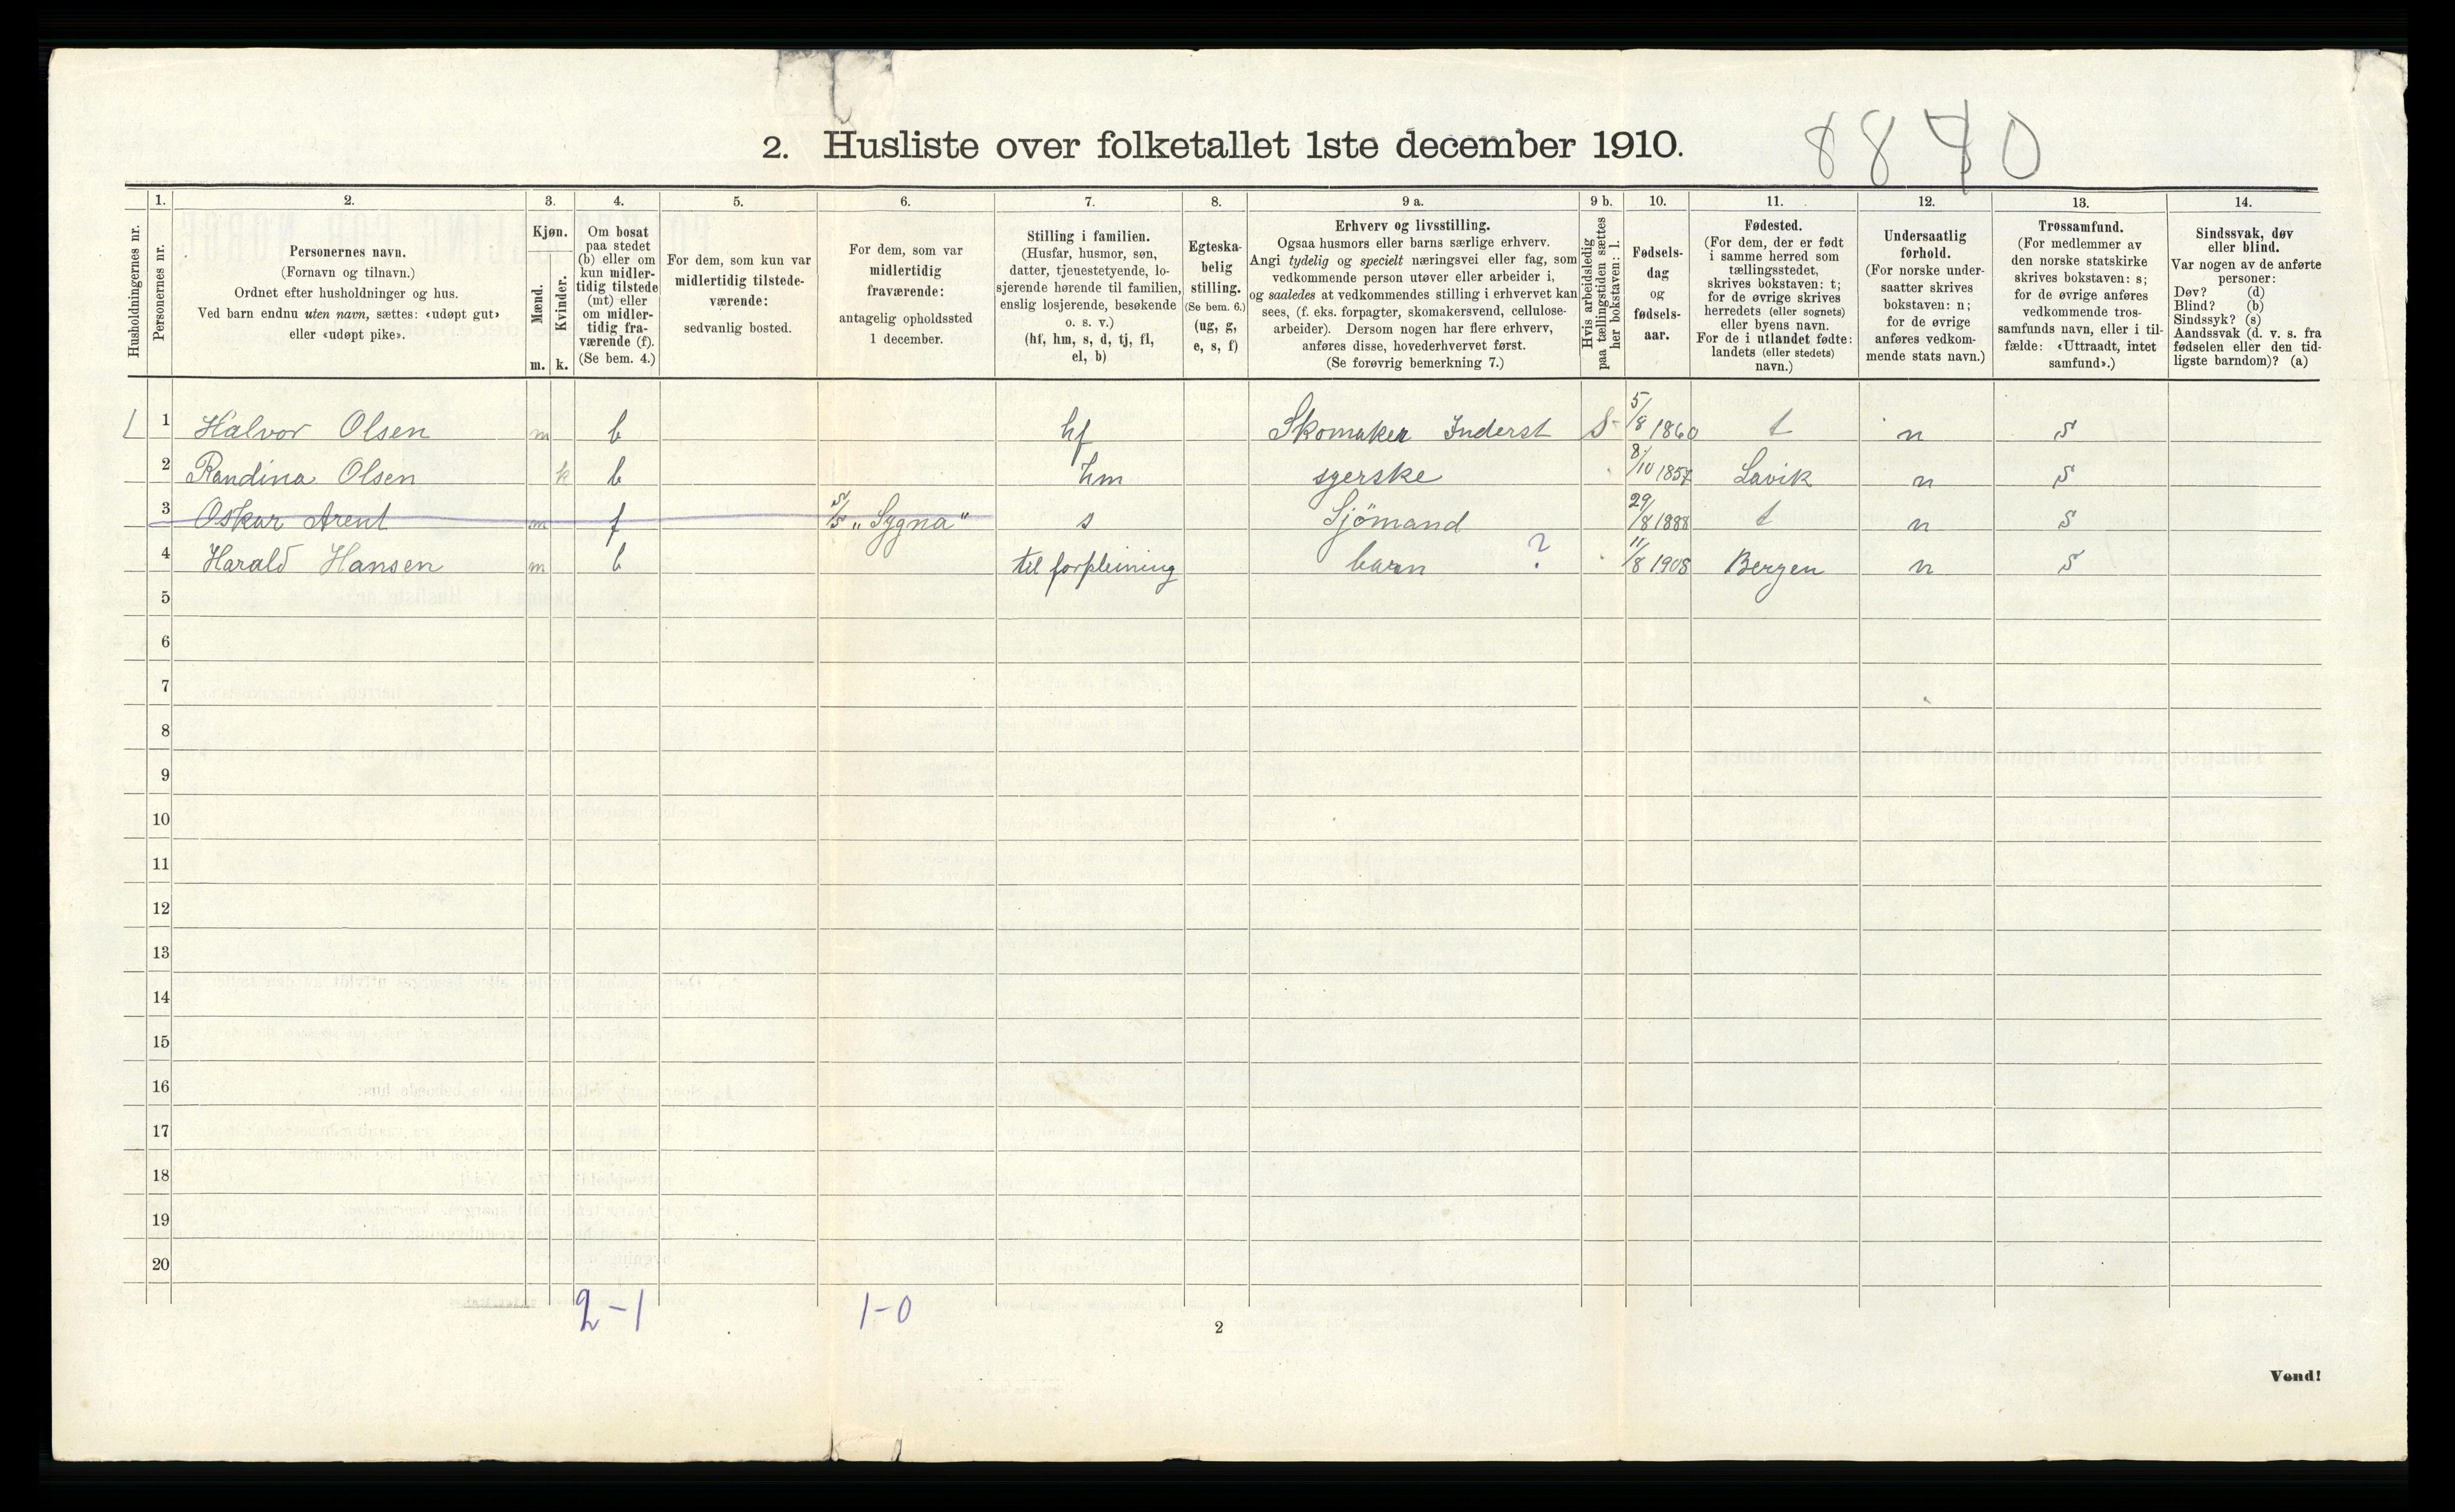 8840
2. Husliste over folketallet 1ste december 1910.
Husholdningernes nr.
1.
Personernes nr.
2.
Personernes navn.
(Fornavn og tilnavn.)
Ordnet efter husholdninger og hus.
Ved barn endnu uten navn, sættes: «udøpt gut»
eller «udøpt pike».
3.
Kjøn.
Mænd.
Kvinder.
m. k.
4.
Om bosat
paa stedet
(b) eller om
kun midler-
tidig tilstede
(mt) eller
om midler-
tidig fra-
værende (f).
(Se bem. 4.)
5.
For dem, som kun var
midlertidig tilstede-
værende:
sedvanlig bosted.
6.
For dem, som var
midlertidig
fraværende:
antagelig opholdssted
1 december.
7.
Stilling i familien.
(Husfar, husmor, søn,
datter, tjenestetyende, lo-
sjerende hørende til familien,
enslig losjerende, besøkende
o. s. v.)
(hf, hm, s, d, tj, fl,
el, b)
8.
Egteska-
belig
stilling.
(Se bem. 6.)
(ug, g,
e, s, f)
9 a.
Erhverv og livsstilling.
Ogsaa husmors eller barns særlige erhverv.
Angi tydelig og specielt næringsvei eller fag, som
vedkommende person utøver eller arbeider i,
og saaledes at vedkommendes stilling i erhvervet kan
sees, (f. eks. forpagter, skomakersvend, cellulose-
arbeider). Dersom nogen har flere erhverv,
anføres disse, hovederhvervet først.
(Se forøvrig bemerkning 7.)
9 b.
Hvis arbeidsledig
paa tællingstiden sættes
her bokstaven: l.
10.
Fødsels-
dag
og
fødsels-
aar.
11.
Fødested.
(For dem, der er født
i samme herred som
tællingsstedet,
skrives bokstaven: t;
for de øvrige skrives
herredets (eller sognets)
eller byens navn.
For de i utlandet fødte:
landets (eller stedets)
navn.)
12.
Undersaatlig
forhold.
(For norske under-
saatter skrives
bokstaven: n;
for de øvrige
anføres vedkom-
mende stats navn.)
13.
Trossamfund.
(For medlemmer av
den norske statskirke
skrives bokstaven: s;
for de øvrige anføres
vedkommende tros-
samfunds navn, eller i til-
fælde: «Uttraadt, intet
samfund».)
14.
Sindssvak, døv
eller blind.
Var nogen av de anførte
personer:
Døv? (d)
Blind? (b)
Sindssyk? (s)
Aandssvak (d. v. s. fra
fødselen eller den tid-
ligste barndom)? (a)
1 Halvor Olsen m b hf Skomaker Inderst S- 5/8 1860 t n S
2 Randina Olsen k b hm syerske 8/10 1857 Lavik n S
3 Oskar Arent m f S/S „Sygna" s Sjömand 29/8 1888 t n S
4 Harald Hansen m b til forpleining barn ? 11/8 1908 Bergen n S
5
6
7
8
9
10
11
12
13
14
15
16
17
18
19
20
2-1 1-0
2
Vend!